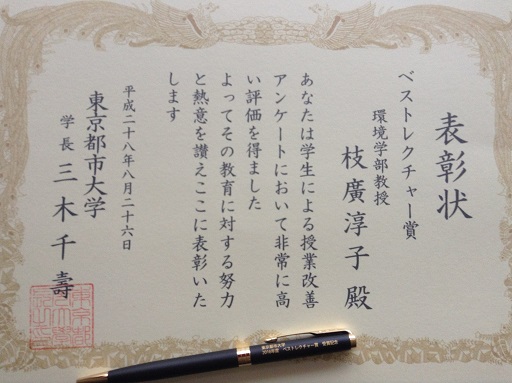 表彰状
ベストレクチャー賞
環境学部教授
枝廣淳子殿
あなたは学生による授業改善
アンケートにおいて非常に高
い評価を得ました
よってその教育に対する努力
と熱意を讃えここに表彰いた
します
平成二十八年八月二十六日
東京都市大学
学長 三木千壽
東京都市大学
2016年度 ベストレクチャー賞 受賞記念